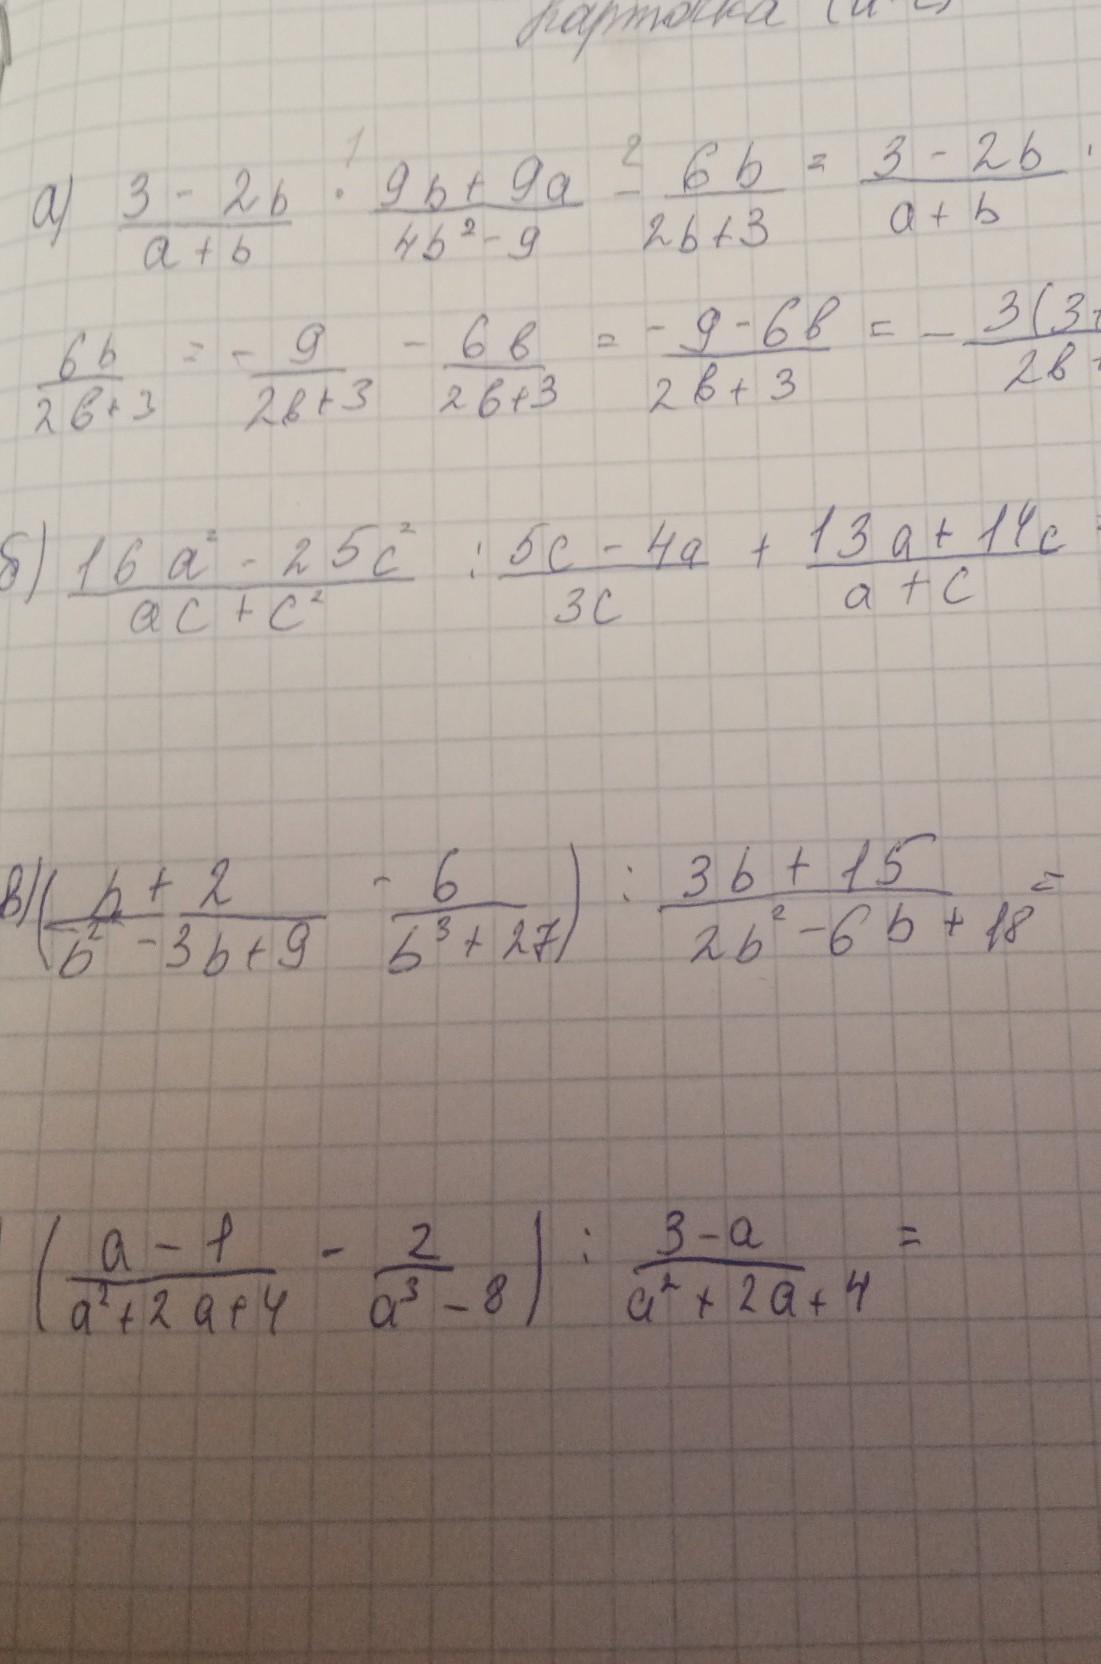 Карточка
а) (3 - 2b)/(a + b) · (9b + 9a)/(4b² - 9) - 6b/(2b + 3) = (3 - 2b)/(a + b) ·
1 2
6b/(2b + 3) = - 9/(2b + 3) - 6b/(2b + 3) = (-9 - 6b)/(2b + 3) = - 3(3+ / 2b+
б) (16a² - 25c²)/(ac + c²) : (5c - 4a)/3c + (13a + 14c)/(a + c) =
в) ((b + 2)/(b² - 3b + 9) - 6/(b³ + 27)) : (3b + 15)/(2b² - 6b + 18) =
((a - 1)/(a² + 2a + 4) - 2/(a³ - 8)) : (3 - a)/(a² + 2a + 4) =